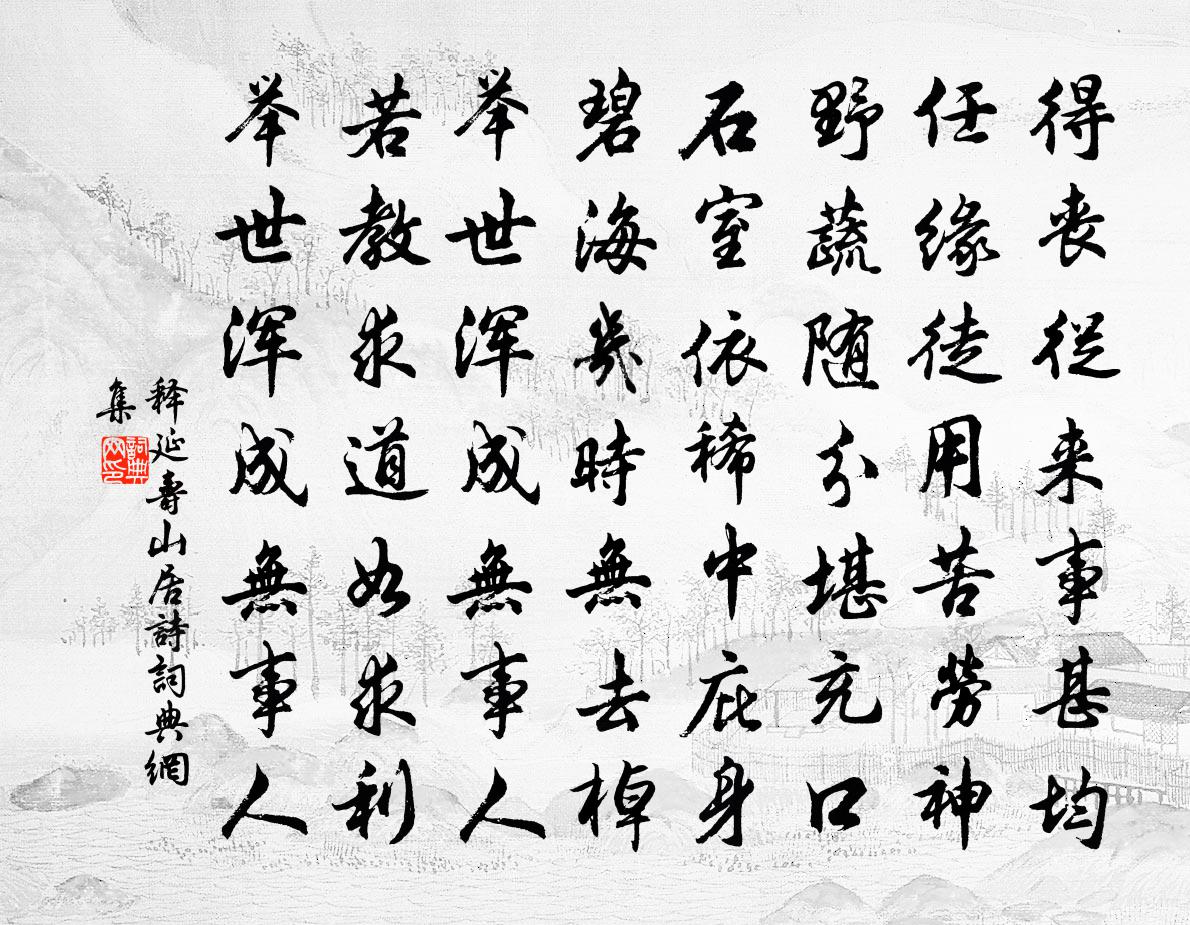 得丧従来事甚均
任缘徒用苦勞神
野蔬随分堪充口
石室依稀中庇身
碧海幾時無去棹
举世浑成無事人
若教求道如求利
举世浑成無事人
释延壽山居詩詞典網
集